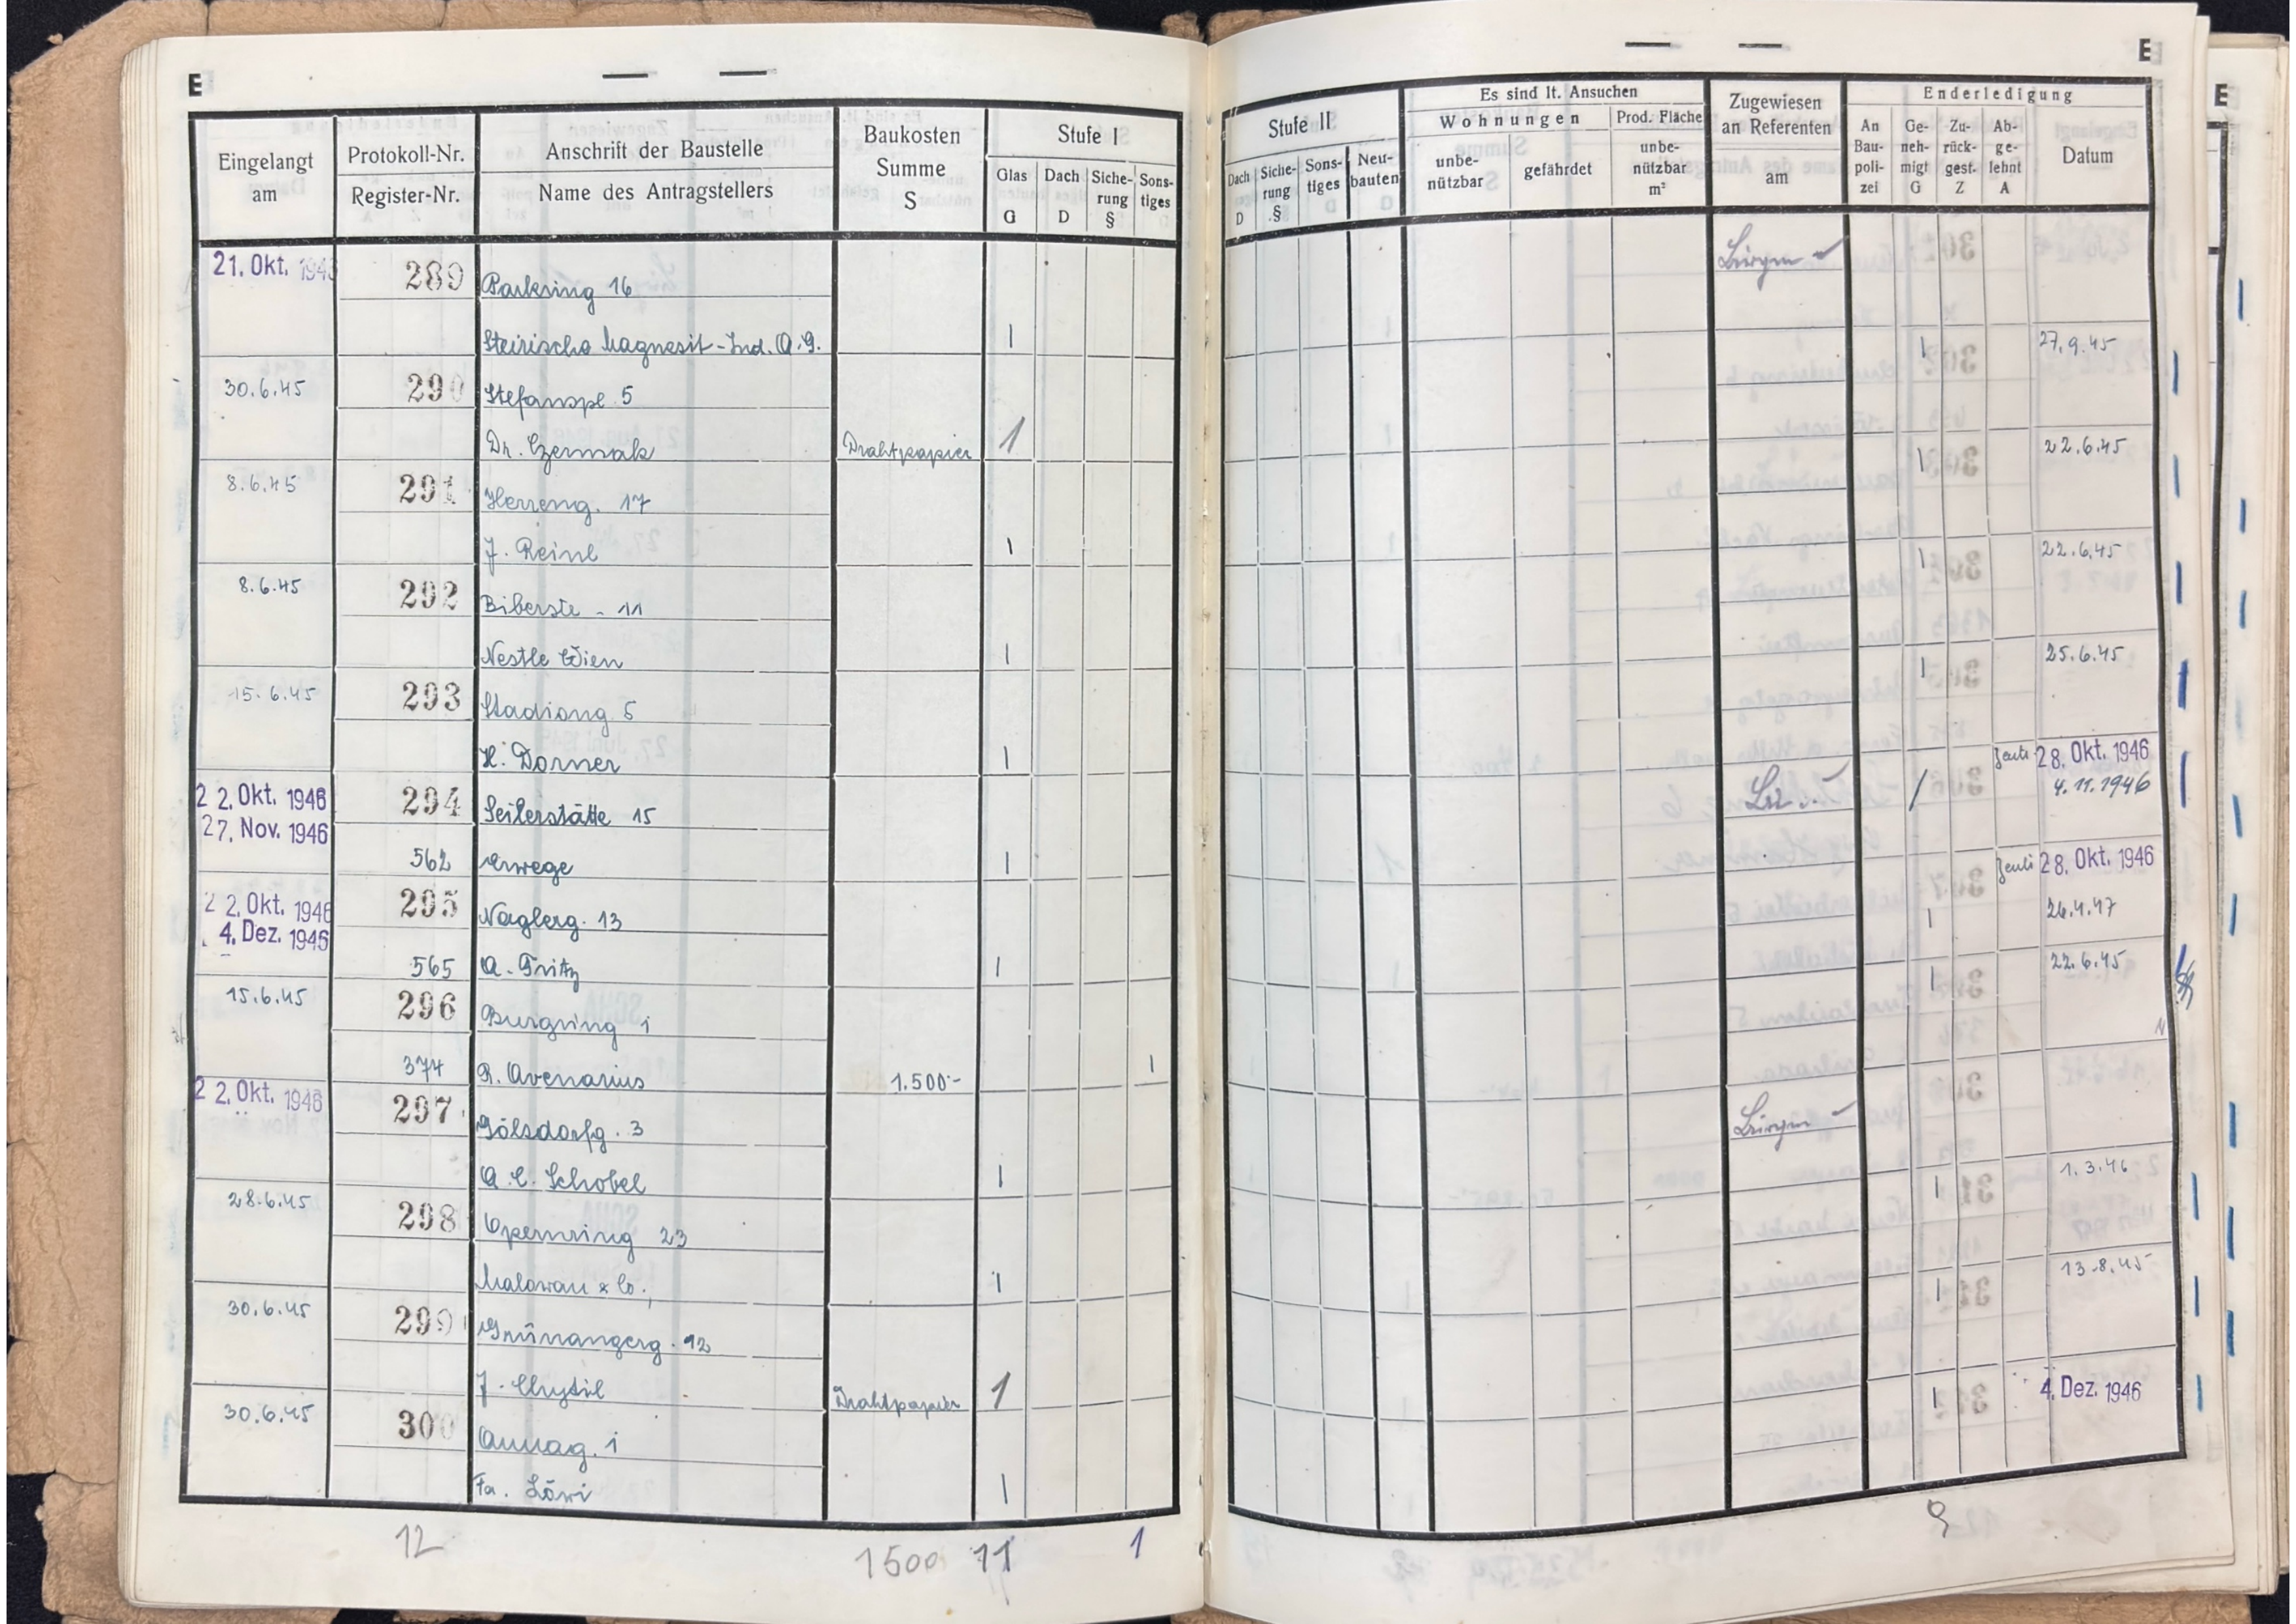 E
Eingelangt am
Protokoll-Nr.
Register-Nr.
Anschrift der Baustelle
Name des Antragstellers
Baukosten
Summe
S
Stufe I
Glas G
Dach D
Siche-rung §
Sons-tiges
21. Okt. 194
289
Parkring 16
Steirische Magnesit-Ind. A.G. I
30.6.45
290
Stefanspl. 5
Dr. Czermak Drahtpapier 1
8.6.45
291
Herreng. 17
J. Reinl I
8.6.45
292
Biberstr. 11
Nestle Wien I
15.6.45
293
Stadiong. 5
H. Dorner I
22. Okt. 1946
294
Seilerstätte 15
27. Nov. 1946
562 Arwege I
22. Okt. 1946
295
Naglerg. 13
4. Dez. 1946
565 A. Fritz I
15.6.45
296
Burgring 1
374 R. Avenarius 1.500.- I
22. Okt. 1946
297
Gölsdorfg. 3
A. C. Schobel I
28.6.45
298
Opernring 23
Malowan & Co. I
30.6.45
299
Grünangerg. 12
J. Chytil Drahtpapier 1
30.6.45
300
Annag. 1
Fa. Löwi I
12 1500 11 1
E
Stufe II
Dach D
Siche-rung §
Sons-tiges
Neu-bauten
Es sind lt. Ansuchen
Wohnungen
unbe-nützbar
gefährdet
Prod. Fläche
unbe-nützbar m²
Zugewiesen
an Referenten
am
Enderledigung
An Bau-poli-zei
Ge-neh-migt G
Zu-rück-gest. Z
Ab-ge-lehnt A
Datum
I 27.9.45
I 22.6.45
I 22.6.45
I 25.6.45
28. Okt. 1946
/ 4.11.1946
28. Okt. 1946
I 26.4.47
I 22.6.45
I 1.3.46
I 13.8.45
I 4. Dez. 1946
9
E